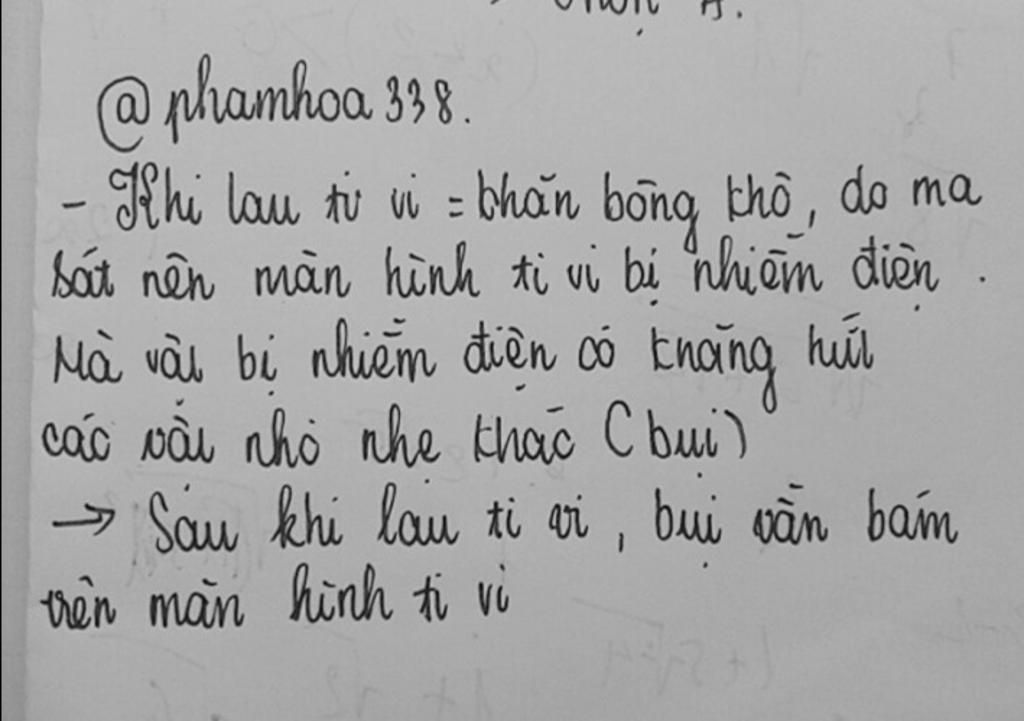 chọn A.
@phamhoa338.
- Khi lau ti vi = khăn bông khô, do ma
sát nên màn hình ti vi bị nhiễm điện.
Mà vật bị nhiễm điện có knăng hút
các vật nhỏ nhẹ khác (bụi)
→ Sau khi lau ti vi, bụi vẫn bám
trên màn hình ti vi